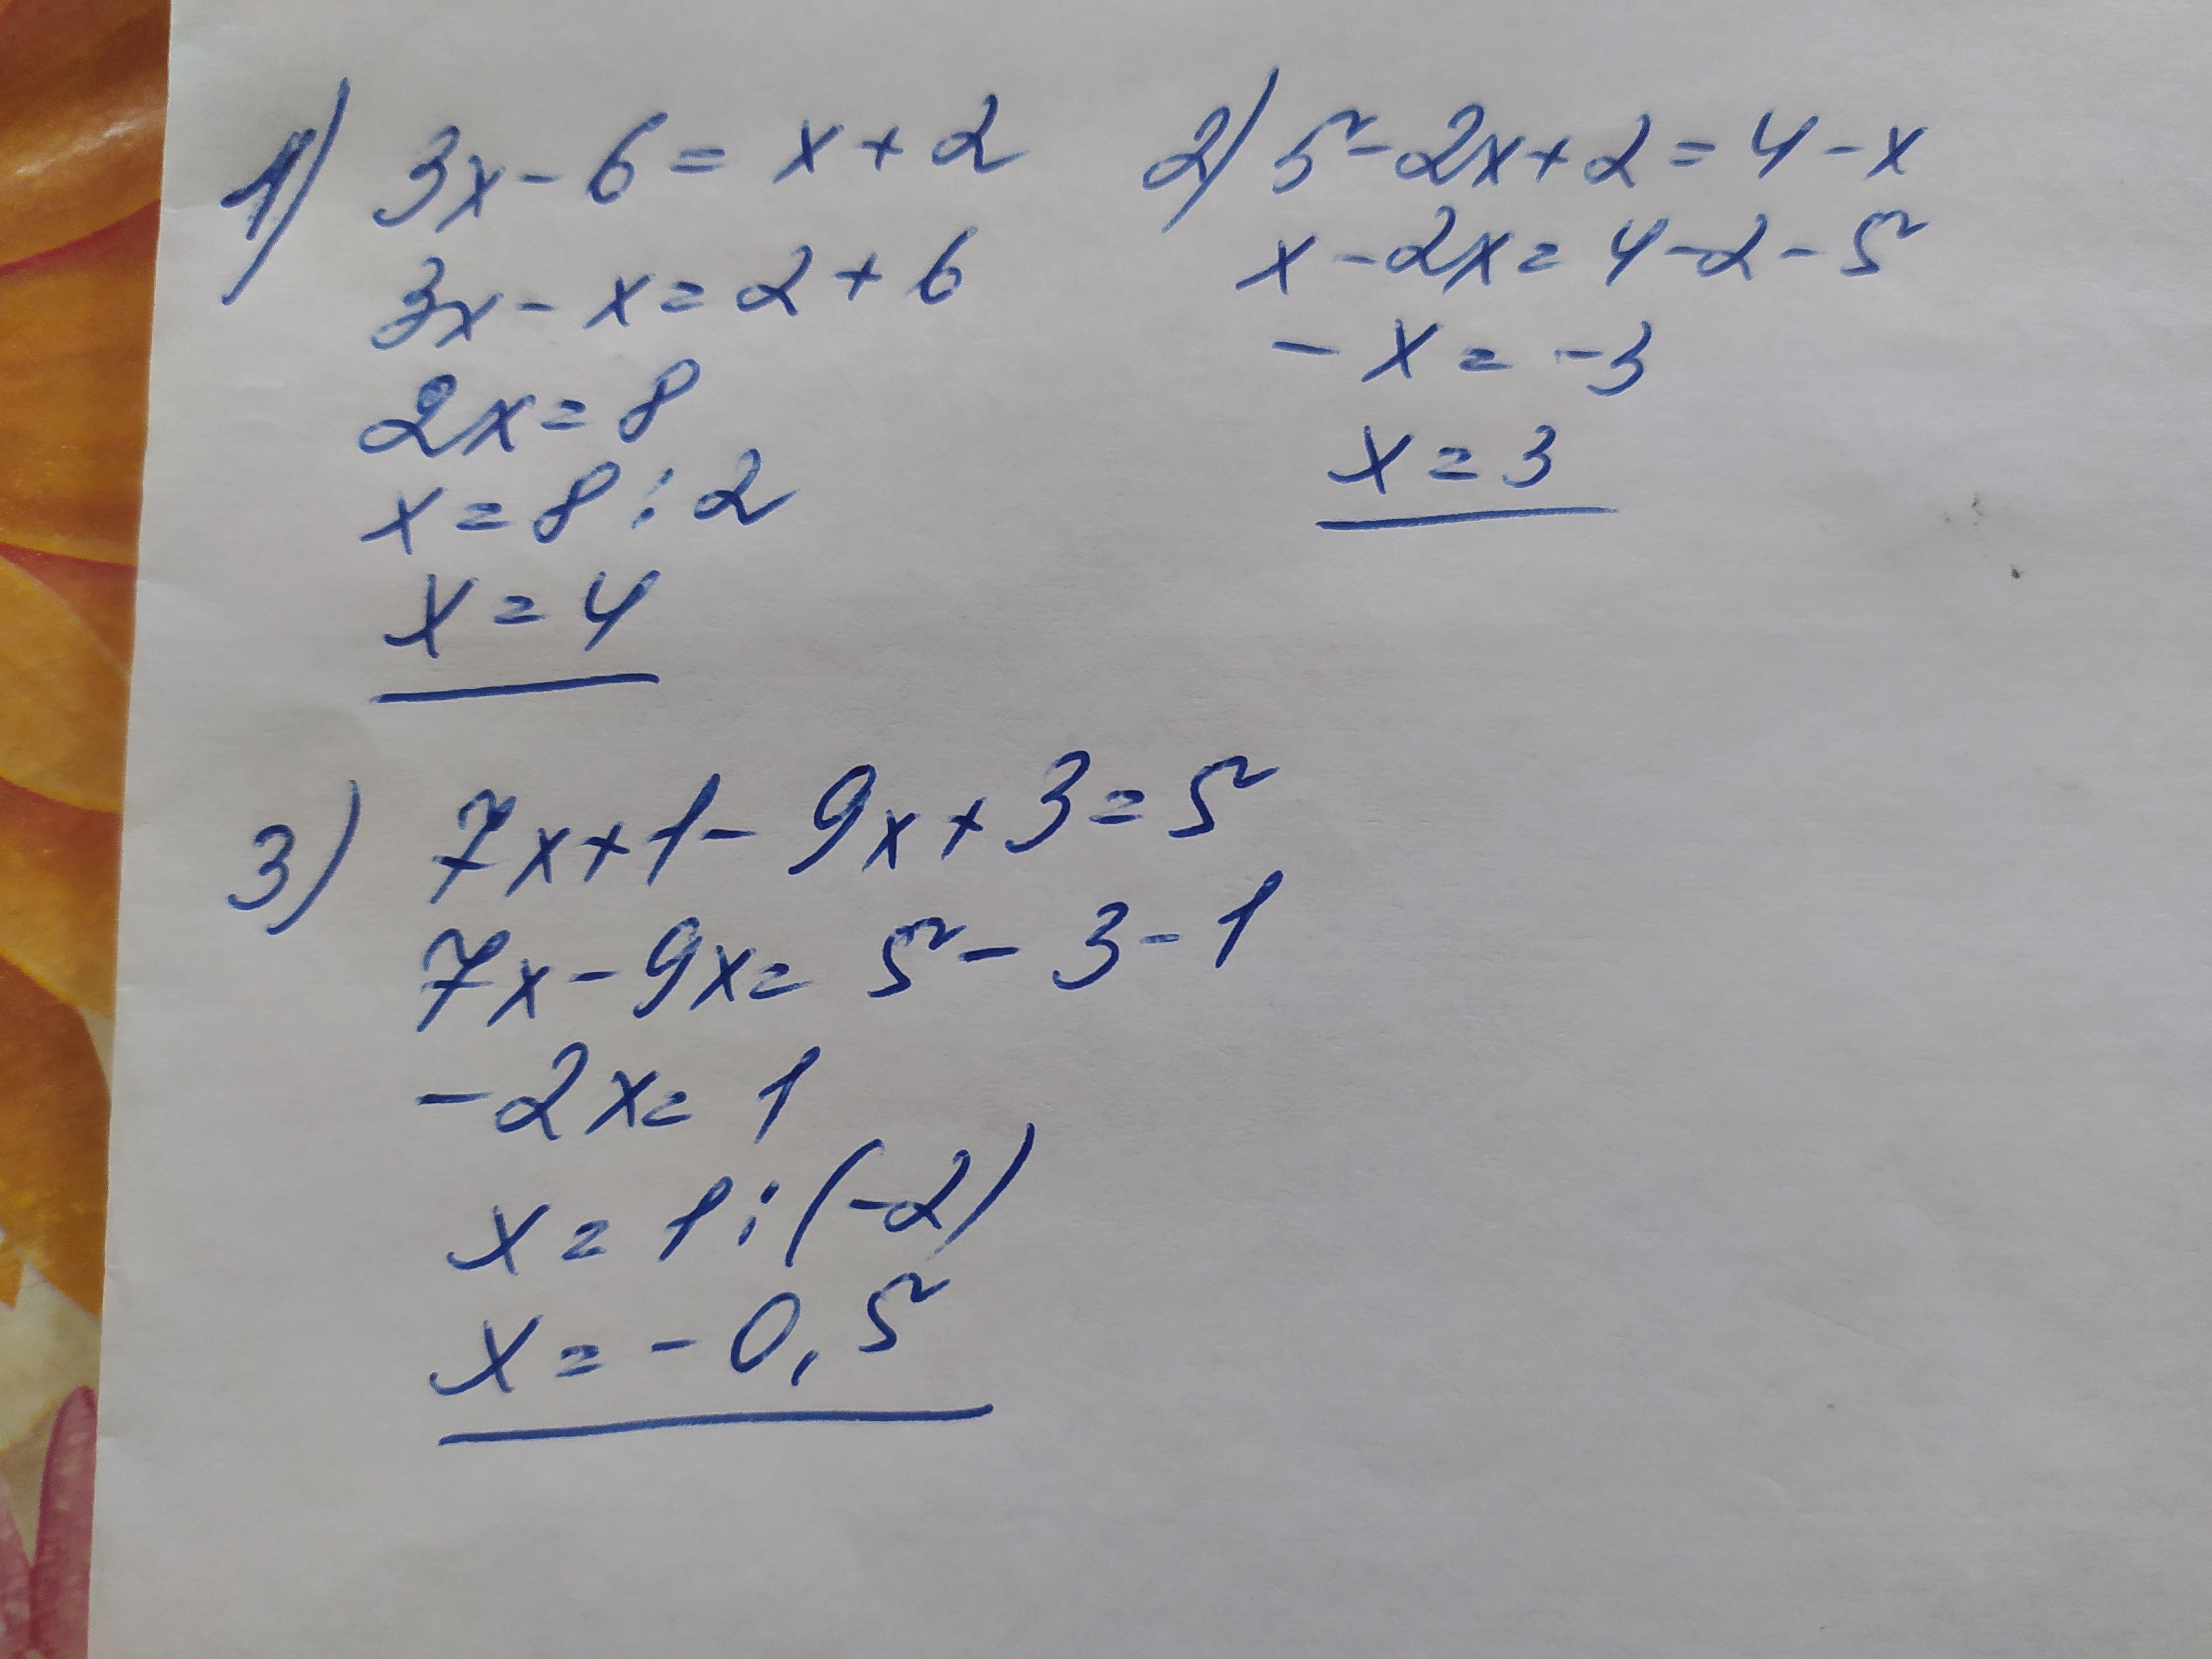 1) 3x - 6 = x + 2
3x - x = 2 + 6
2x = 8
x = 8 : 2
x = 4
2) 5 - 2x + 2 = 4 - x
x - 2x = 4 - 2 - 5
- x = -3
x = 3
3) 7x + 1 - 9x + 3 = 5
7x - 9x = 5 - 3 - 1
-2x = 1
x = 1 : (-2)
x = -0,5